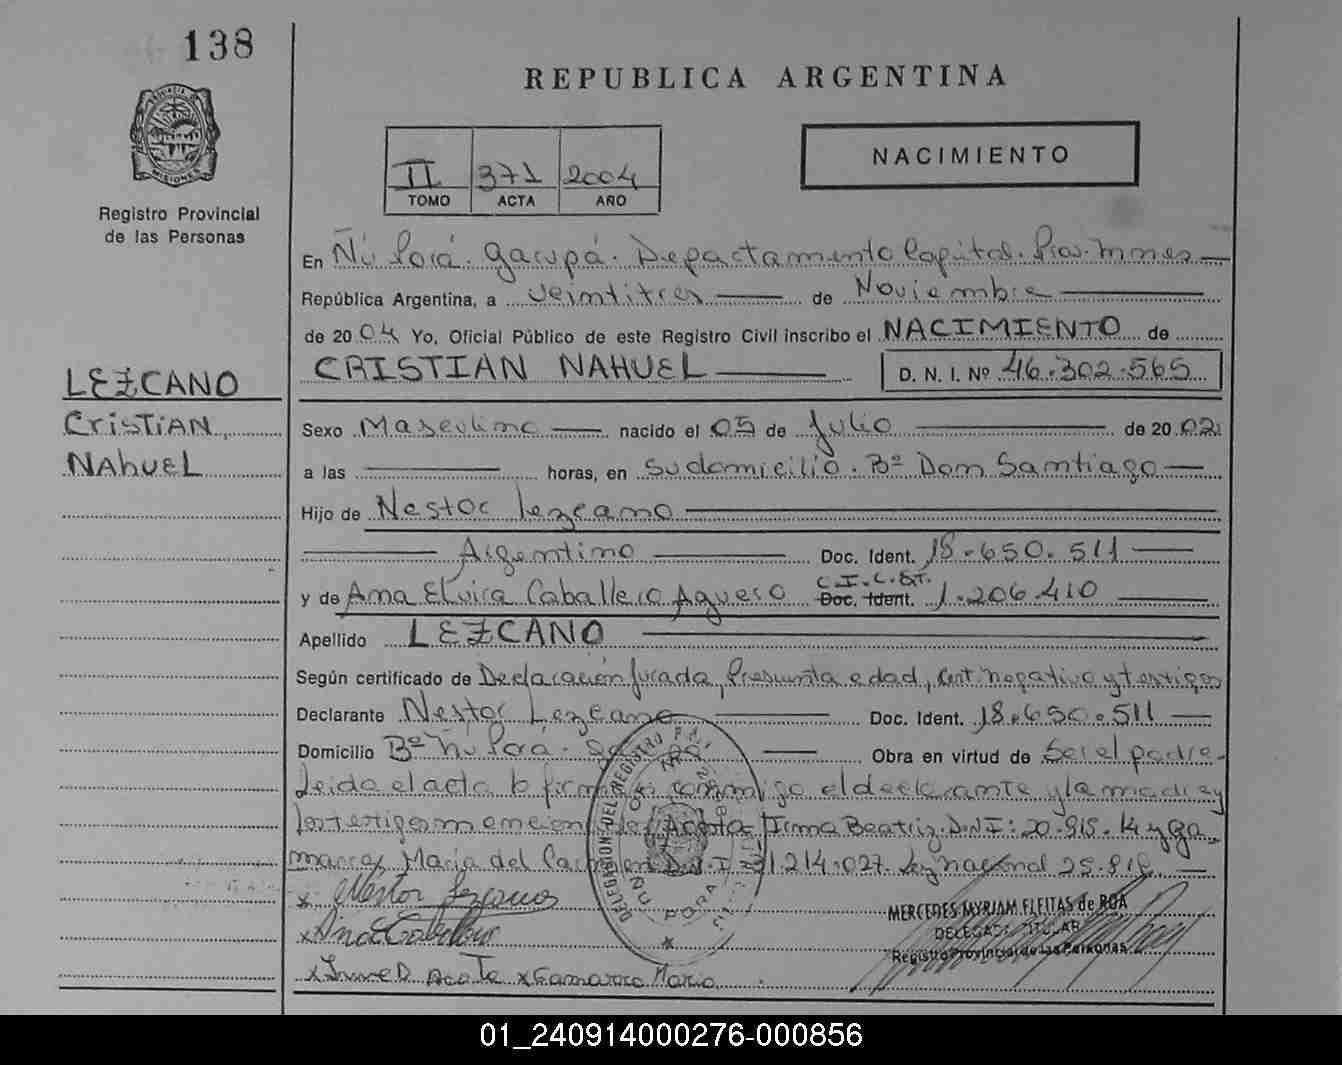 138
REPUBLICA ARGENTINA
II 371 2004
TOMO ACTA AÑO
NACIMIENTO
MISIONES
Registro Provincial
de las Personas
En Ñú Porá. Garupá. Departamento Capital. Prov. Mnes
República Argentina, a veintitres de Noviembre
de 2004 Yo, Oficial Público de este Registro Civil inscribo el NACIMIENTO de
CRISTIAN NAHUEL D. N. I. Nº 46.302.565
LEZCANO
CrisTiAN
NAhUEL
Sexo Masculino nacido el 05 de Julio de 2002
a las horas, en su domicilio. Bº Don Santiago
Hijo de Nestor Lezcano
Argentino Doc. Ident. 18.650.511
y de Ana Elvira Caballero Aguero C.I.C.&T. Doc. Ident. 1.206.410
Apellido LEZCANO
Según certificado de Declaración Jurada, Presunta edad, cert negativo y testigos
Declarante Nestor Lezcano Doc. Ident. 18.650.511
Domicilio Bº Ñú Porá. Obra en virtud de ser el padre.
Leida el acta lo firman conmigo el declarante y la madre y
los testigos mencionados Acosta Irma Beatriz. D.N.I: 20.815.14 y Ga
marra, Maria del Carmen D.N.I 21.214.027. Ley nacional 25.818
x Néstor Lezcano
x Ana E Caballero
x Irma B Acosta x Gamarra Maria
DELEGACION DEL REGISTRO
ÑU PORA
MERCEDES MYRIAM FLEITAS de ROA
DELEGADA TITULAR
Registro Provincial de las Personas
01_240914000276-000856